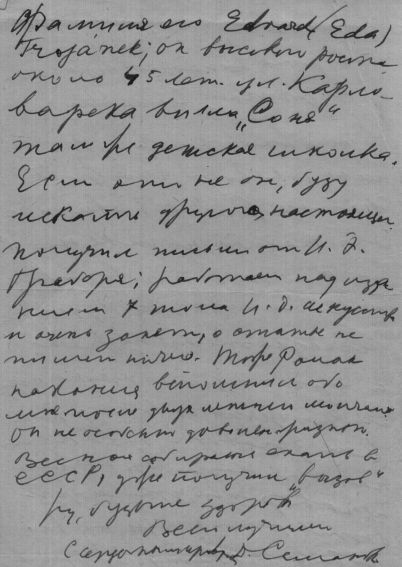 Фамилия его Edvard (Eda)
Trojánek; он высокого роста
около 45 лет. ул. Карло-
варска вилла „Соня“
там же детская школка.
Если это не он, буду
искать другого, настоящего.
Получил письмо от И. Э.
Грабаря; работает над изда-
нием 7 тома И. Р. Искусства
и очень занят, о статье не
пишет ничего. Тоже Роман
наконец вспомнил обо
мне после двух летнего молчания
он не особенно доволен
Весной собираюсь ехать в
СССР, уже получил „вызов“
Ну, будьте здоровы
Всего лучшего
С